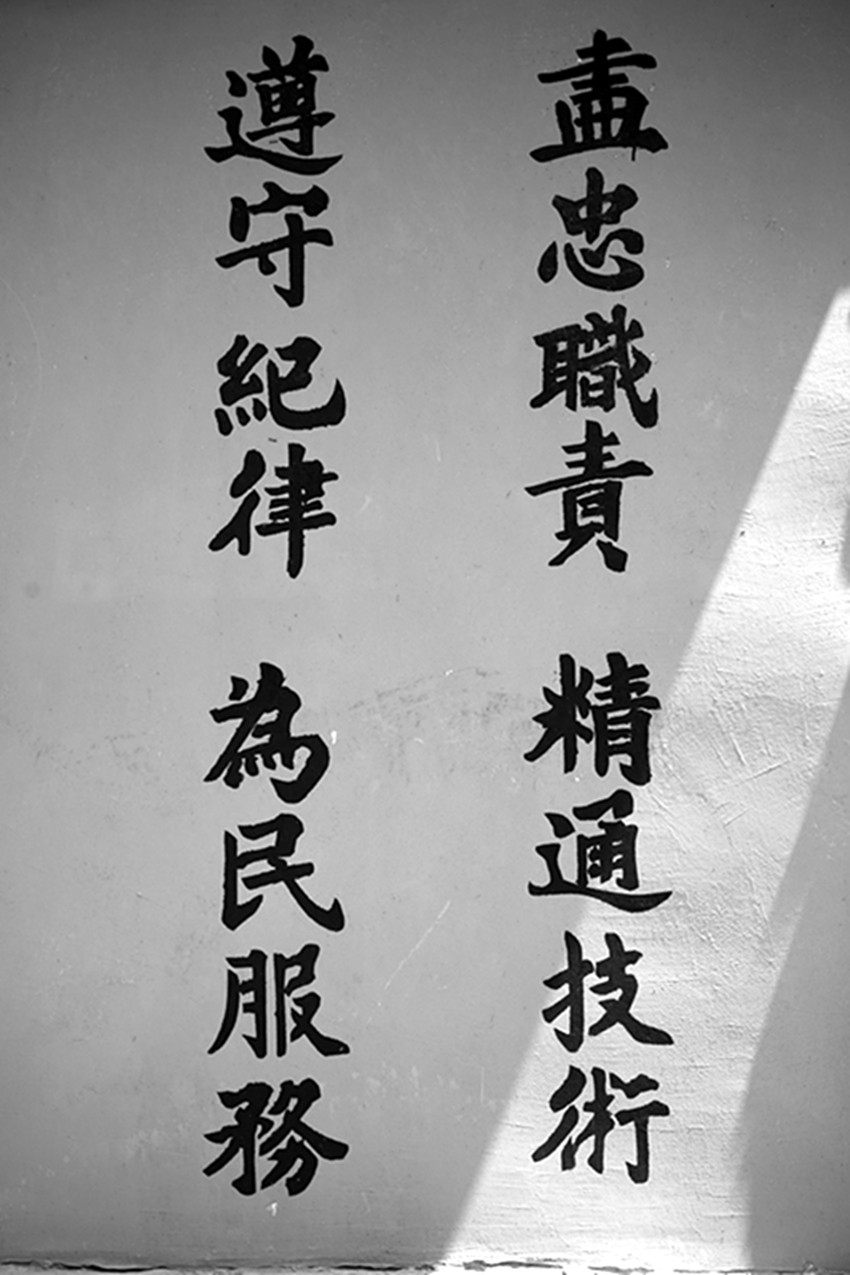 盡忠職責 精通技術
遵守紀律 為民服務